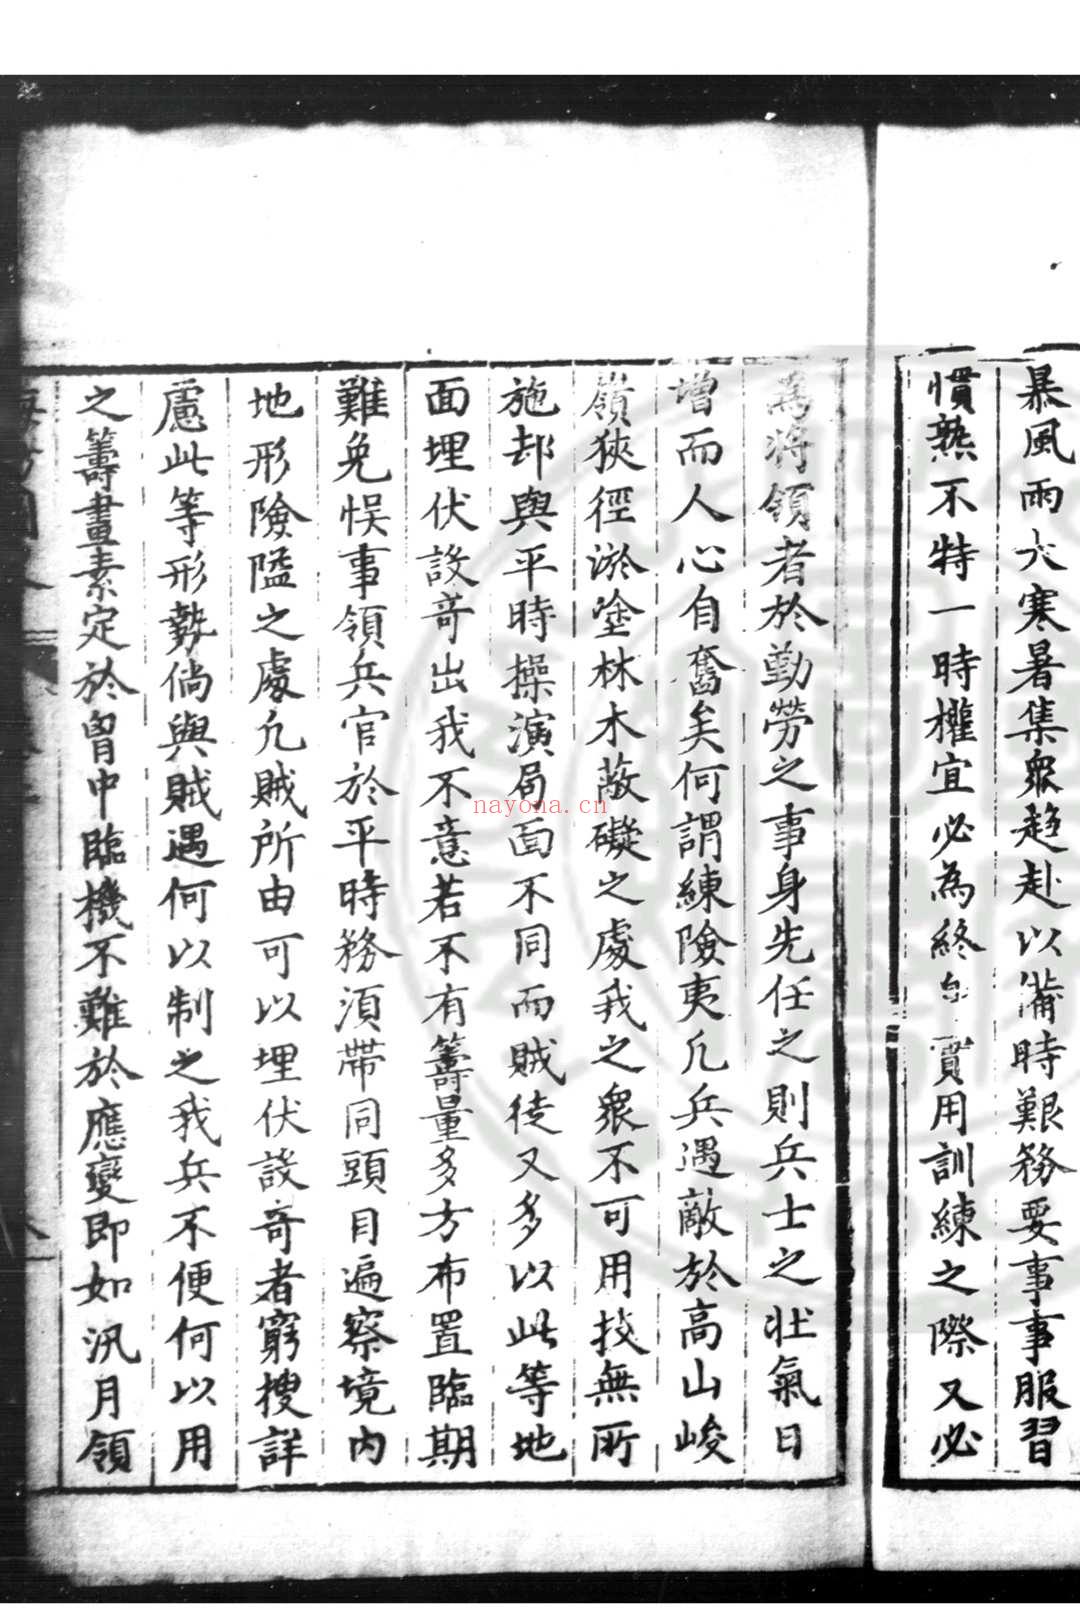 暴風雨大寒暑集衆趋赴以備時艱務要事事服習
慣熟不特一時權宜必為終身實用訓練之際又必
為將領者於勤勞之事身先任之則兵士之壮氣日
增而人心自奮矣何謂練險夷凢兵遇敵於高山峻
嶺狹徑淤塗林木蔽礙之處我之衆不可用技無所
施却與平時操演局面不同而賊徒又多以此等地
面埋伏設竒出我不意若不有籌量多方布置臨期
難免悞事領兵官於平時務湏帶同頭目遍察境内
地形險隘之處凢賊所由可以埋伏設竒者窮搜詳
慮此等形勢倘與賊遇何以制之我兵不便何以用
之籌畫素定於胷中臨機不難於應變即如汛月領
nayona.cn